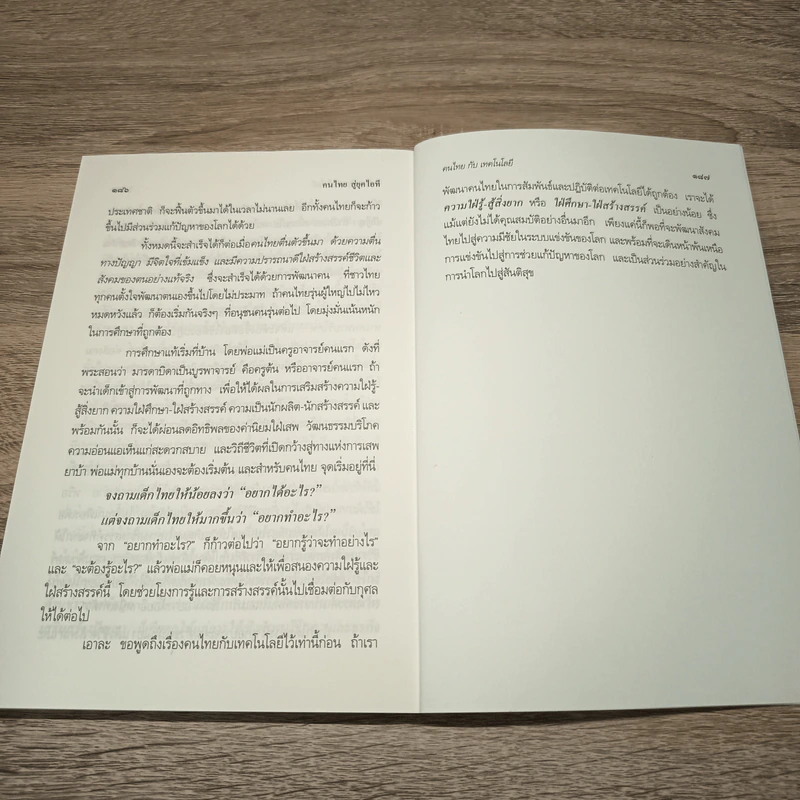 ๑๘๖ คนไทย สู่ยุคไอที
ประเทศชาติ ก็จะฟื้นตัวขึ้นมาได้ในเวลาไม่นานเลย อีกทั้งคนไทยก็จะก้าว
ขึ้นไปมีส่วนร่วมแก้ปัญหาของโลกได้ด้วย
ทั้งหมดนี้จะสำเร็จได้ก็ต่อเมื่อคนไทยตื่นตัวขึ้นมา ด้วยความตื่น
ทางปัญญา มีจิตใจที่เข้มแข็ง และมีความปรารถนาดีใฝ่สร้างสรรค์ชีวิตและ
สังคมของตนอย่างแท้จริง ซึ่งจะสำเร็จได้ด้วยการพัฒนาคน ที่ชาวไทย
ทุกคนตั้งใจพัฒนาตนเองขึ้นไปโดยไม่ประมาท ถ้าคนไทยรุ่นผู้ใหญ่ไปไม่ไหว
หมดหวังแล้ว ก็ต้องเริ่มกันจริงๆ ที่อนุชนคนรุ่นต่อไป โดยมุ่งมั่นเน้นหนัก
ในการศึกษาที่ถูกต้อง
การศึกษาแท้เริ่มที่บ้าน โดยพ่อแม่เป็นครูอาจารย์คนแรก ดังที่
พระสอนว่า มารดาบิดาเป็นบูรพาจารย์ คือครูต้น หรืออาจารย์คนแรก ถ้า
จะนำเด็กเข้าสู่การพัฒนาที่ถูกทาง เพื่อให้ได้ผลในการเสริมสร้างความใฝ่รู้-
สู้สิ่งยาก ความใฝ่ศึกษา-ใฝ่สร้างสรรค์ ความเป็นนักผลิต-นักสร้างสรรค์ และ
พร้อมกันนั้น ก็จะได้ผ่อนลดอิทธิพลของค่านิยมใฝ่เสพ วัฒนธรรมบริโภค
ความอ่อนแอเห็นแก่สะดวกสบาย และวิถีชีวิตที่เปิดกว้างสู่ทางแห่งการเสพ
ยาบ้า พ่อแม่ทุกบ้านนั่นเองจะต้องเริ่มต้น และสำหรับคนไทย จุดเริ่มอยู่ที่นี่
จงถามเด็กไทยให้น้อยลงว่า "อยากได้อะไร?"
แต่จงถามเด็กไทยให้มากขึ้นว่า "อยากทำอะไร?"
จาก "อยากทำอะไร?" ก็ก้าวต่อไปว่า "อยากรู้ว่าจะทำอย่างไร"
และ "จะต้องรู้อะไร?" แล้วพ่อแม่ก็คอยหนุนและให้เพื่อสนองความใฝ่รู้และ
ใฝ่สร้างสรรค์นี้ โดยช่วยโยงการรู้และการสร้างสรรค์นั้นไปเชื่อมต่อกับกุศล
ให้ได้ต่อไป
เอาละ ขอพูดถึงเรื่องคนไทยกับเทคโนโลยีไว้เท่านี้ก่อน ถ้าเรา
คนไทย กับ เทคโนโลยี ๑๘๗
พัฒนาคนไทยในการสัมพันธ์และปฏิบัติต่อเทคโนโลยีได้ถูกต้อง เราจะได้
ความใฝ่รู้-สู้สิ่งยาก หรือ ใฝ่ศึกษา-ใฝ่สร้างสรรค์ เป็นอย่างน้อย ซึ่ง
แม้แต่ยังไม่ได้คุณสมบัติอย่างอื่นมาอีก เพียงแค่นี้ก็พอที่จะพัฒนาสังคม
ไทยไปสู่ความมีชัยในระบบแข่งขันของโลก และพร้อมที่จะเดินหน้าพ้นเหนือ
การแข่งขันไปสู่การช่วยแก้ปัญหาของโลก และเป็นส่วนร่วมอย่างสำคัญใน
การนำโลกไปสู่สันติสุข